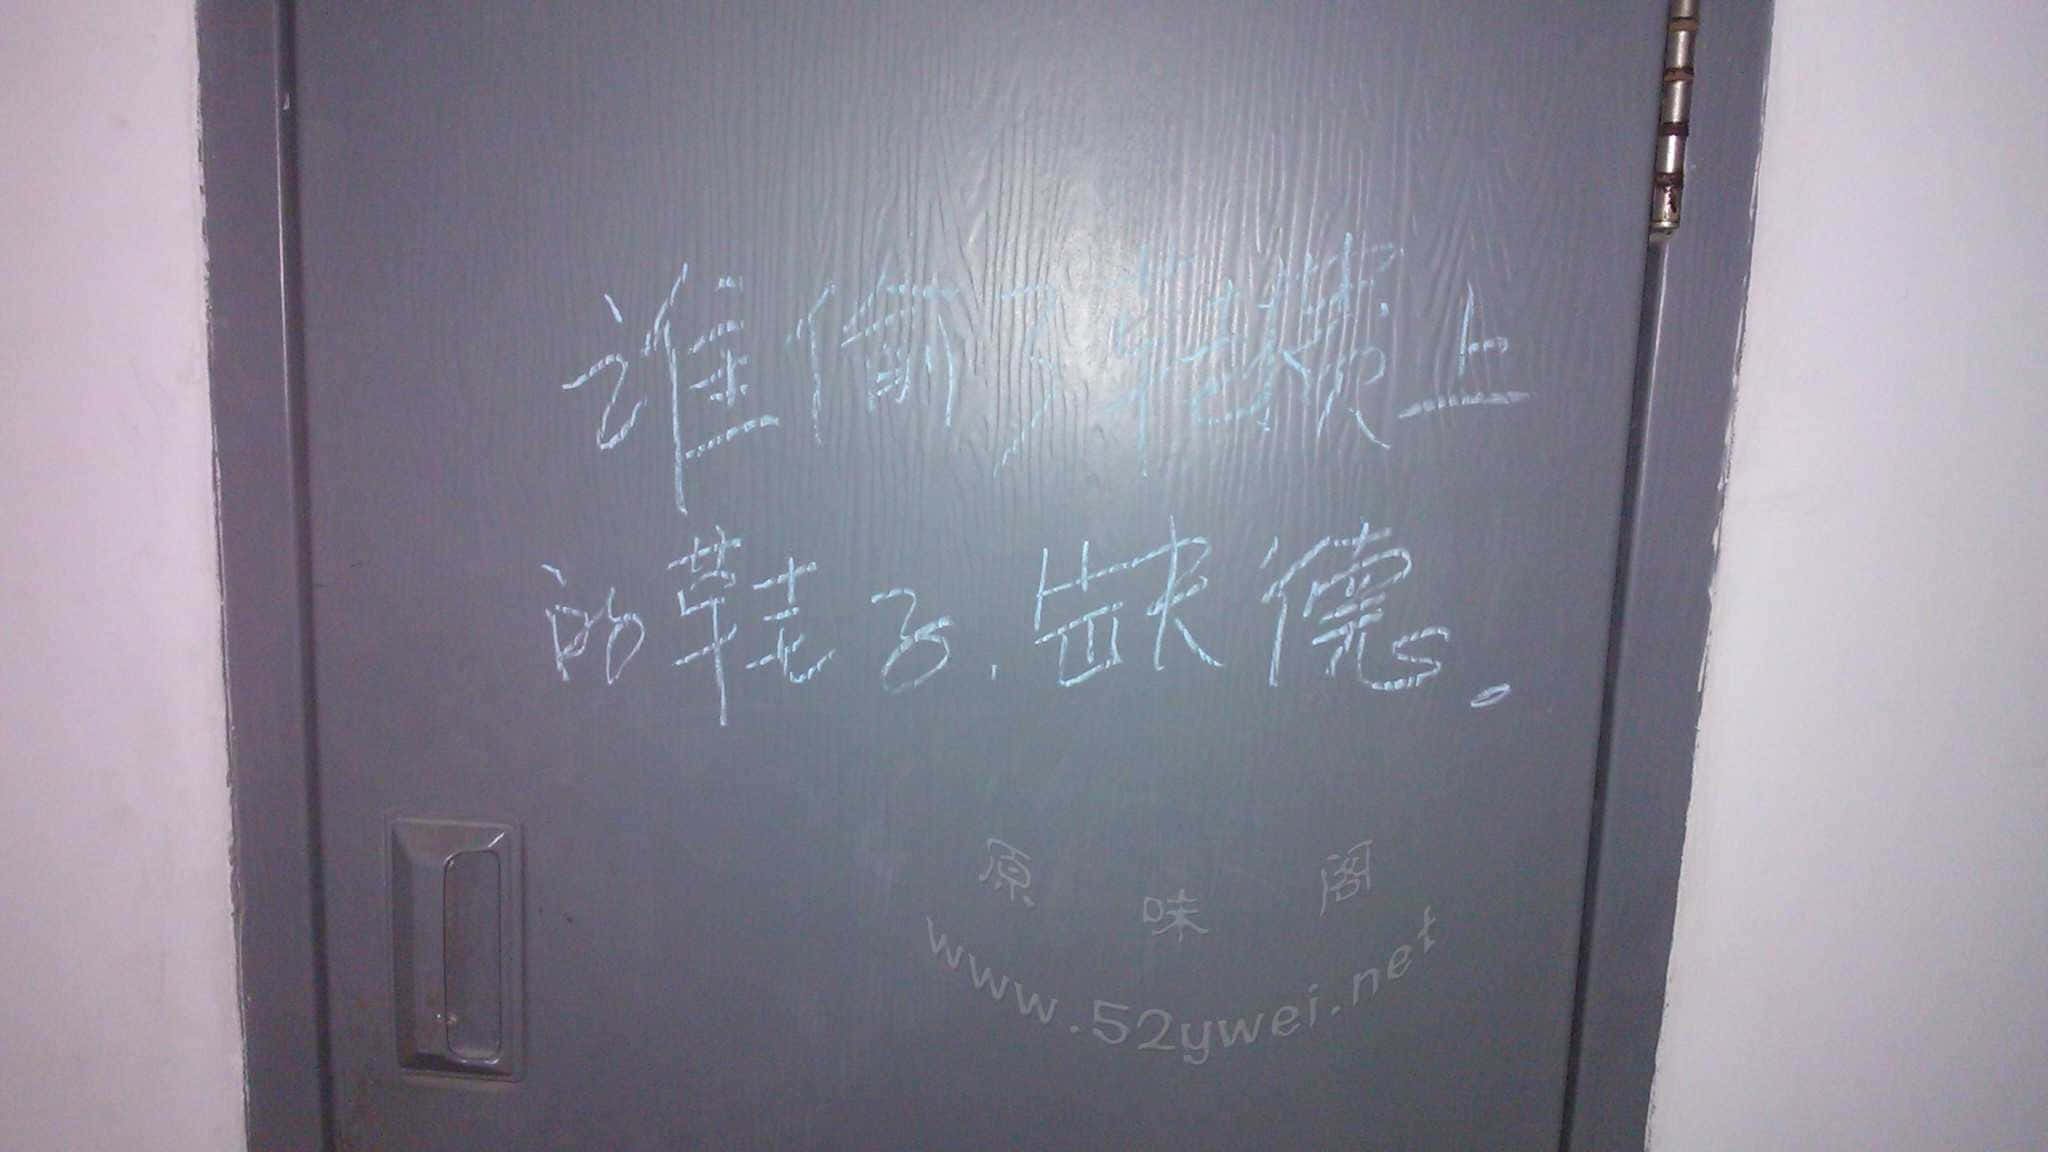 谁偷了鞋架上
的鞋了.缺德。
原味阁
www.52ywei.net